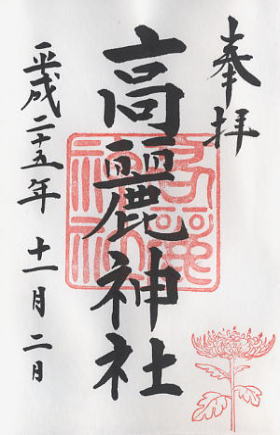 奉拝
高麗神社
高麗神社
平成二十五年十一月二日